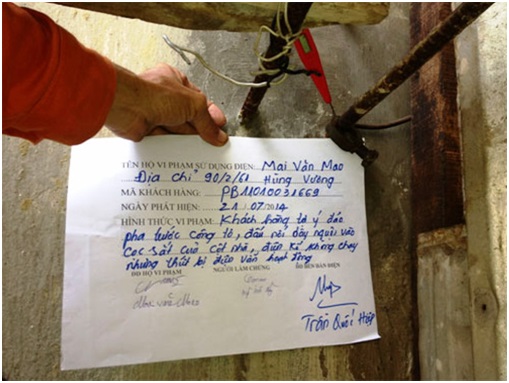 TÊN HỘ VI PHẠM SỬ DỤNG ĐIỆN: Mai Văn Mao
Địa chỉ 90/2/61 Hùng Vương
MÃ KHÁCH HÀNG: PB11010031669
NGÀY PHÁT HIỆN: 21/07/2014
HÌNH THỨC VI PHẠM: Khách hàng tự ý đảo
pha trước công tơ, đấu nối dây nguội vào
cọc sắt của cột nhà, điện kế không chạy
nhưng thiết bị điện vẫn hoạt động
ĐD HỘ VI PHẠM NGƯỜI LÀM CHỨNG ĐD BÊN BÁN ĐIỆN
Trần Quốc Hiệp